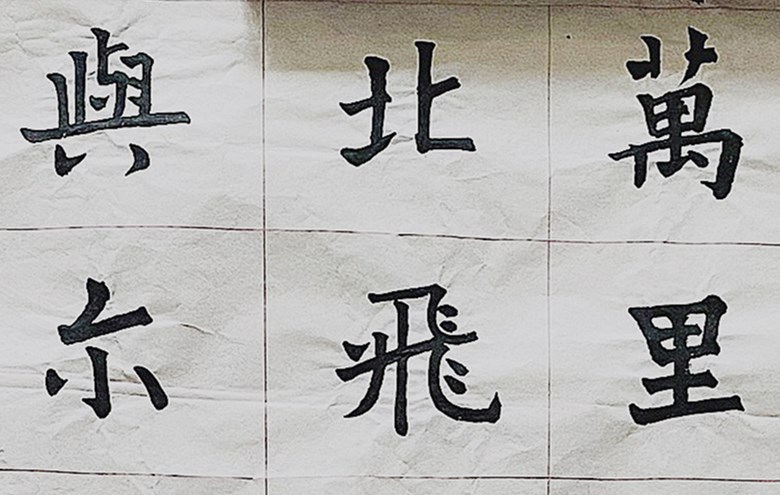 萬里
北飛
與尔